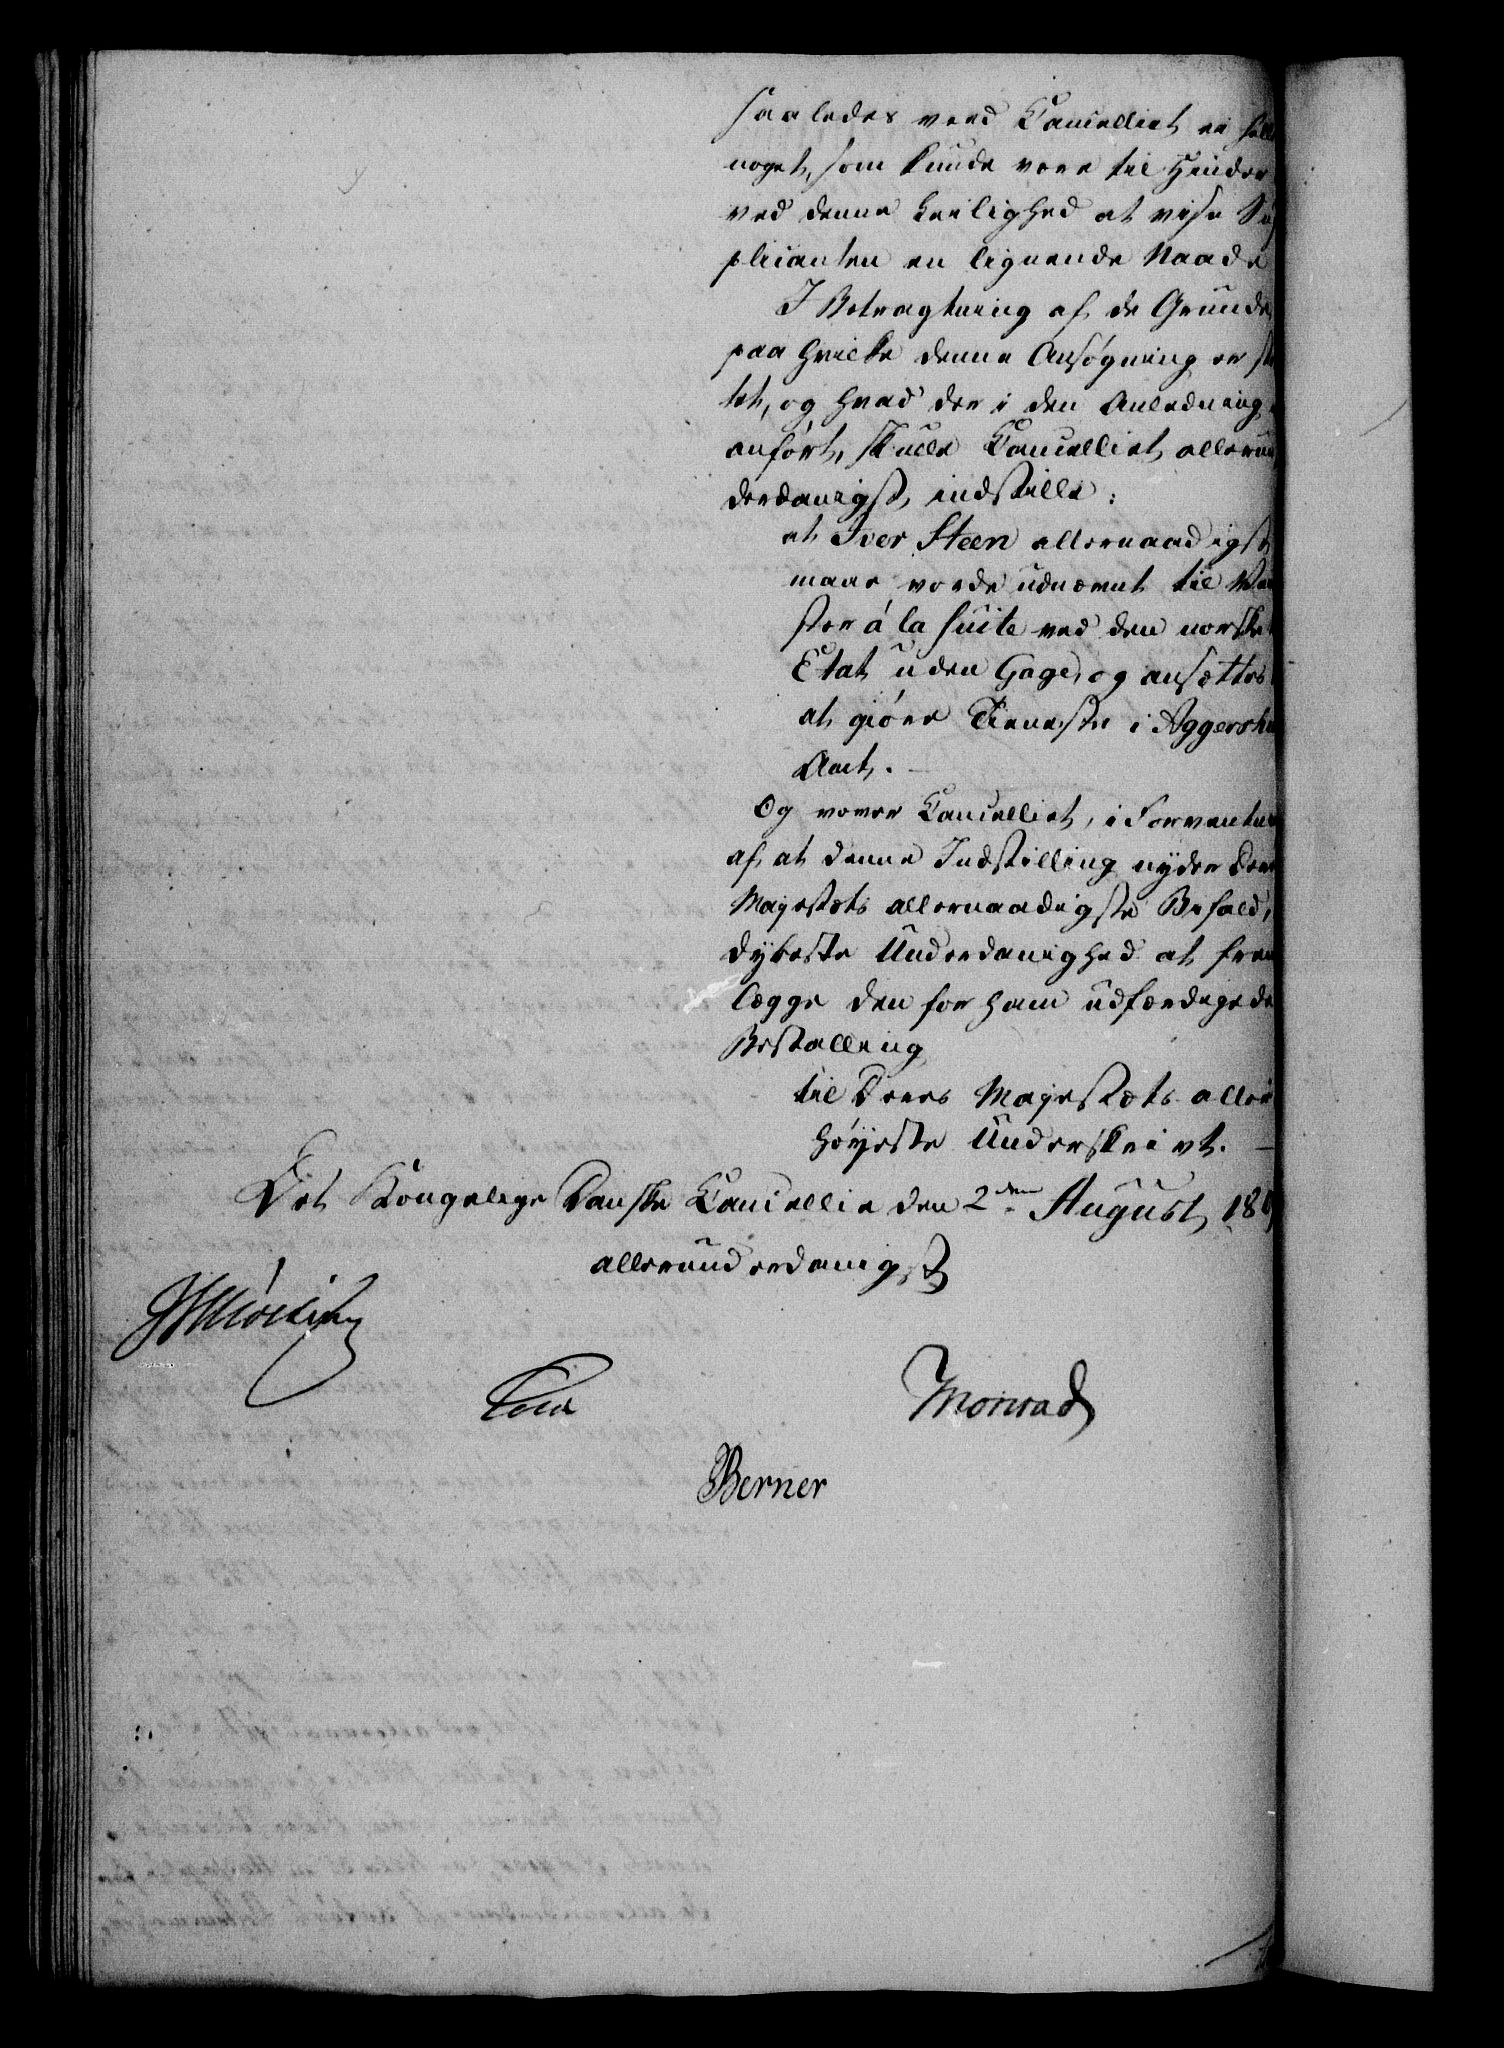 saaledes veed Cancelliet ei heller
noget, som kunde være til Hinder
ved denne Leilighed at vise Sup
plicanten en lignende Naade
I Betragtning af de Grunde,
paa hvilke denne Ansøgning er støt
tet, og hvad der i den Anledning er
anført, skulle Cancelliet allerun
derdanigst indstille:
at Iver Steen allernaadigst
maae vorde udnævnt til
ster á la suite ved den norske
Etat uden Gage, og ansættes
at giöre Tieneste i Aggershuus
Amt. —
Og vover Cancelliet, i Forventning
af at denne Indstilling nyder Deres
Majestæts allernaadigste Bifald, i
dybeste Underdanighed at frem
lægge den for ham udfærdigede
Bestalling
til Deres Majestæts aller
høyeste Underskrivt. —
Det Kongelige Danske Cancellie den 2den August 18
allerunderdanigst
Monrad
Berner